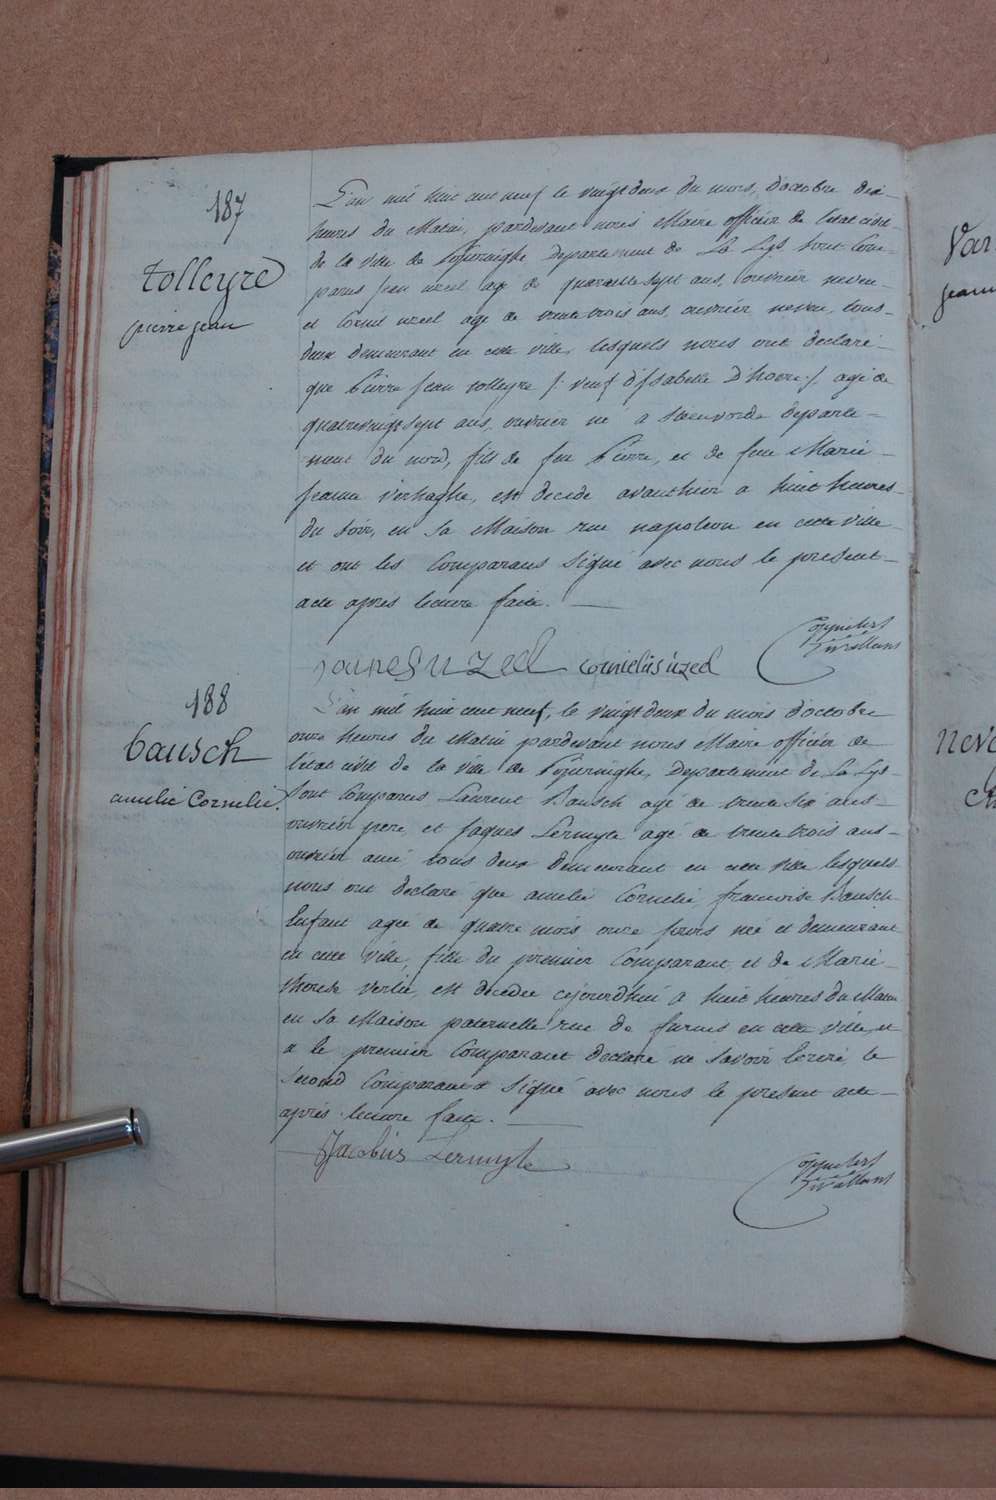 187
tolleyre
pierre jean
L'an mil huit cent neuf le vingt deux du mois, d'octobre dix
heures du Matin, pardevant nous Maire officier de l'état civil
de la ville de Poperinghe Departement de La Lys sont Com-
parus jean uzeel age de quarante sept ans, ouvrier neveu
et Cornil uzeel age de trente trois ans, ouvrier neveu, tous
deux demeurant en cette ville, lesquels nous ont declaré
que Pierre jean tolleyre /: veuf d'isabelle D'hoore :/ agé de
quatrevingt sept ans, ouvrier né a steenvorde departe-
ment du nord, fils de feu Pierre, et de feue Marie
jeanne verhaghe, est decedé avanthier a huit heures
du soir, en sa Maison rue napoleon en cette ville
et ont les Comparans signé avec nous le present
acte apres lecture faite.
joannes uzeel corneliis uzeel
188
bausch
amelie Cornelie.
L'an mil huit cent neuf, le vingt deux du mois d'octobre
onze heures du Matin pardevant nous Maire officier de
l'état civil de la ville de Poperinghe, departement de La Lys
sont Comparus Laurent Bausch agé de trente six ans
ouvrier pere, et jaques Lermyte agé de trente trois ans
ouvrier ami tous deux demeurant en cette ville lesquels
nous ont declaré que amelie Cornelie francoise Bausch
Enfant agée de quatre mois onze jours née et demeurant
en cette ville, fille du premier Comparant et de Marie
therese verlie, est decedée cejourd'hui a huit heures du Matin
en sa Maison paternelle rue de furnes en cette ville, et
a le premier Comparant declaré ne savoir Ecrire, le
second Comparant a signé avec nous le present acte
après lecture faite.
Jacobus Lermyte
Var
jeann
neve